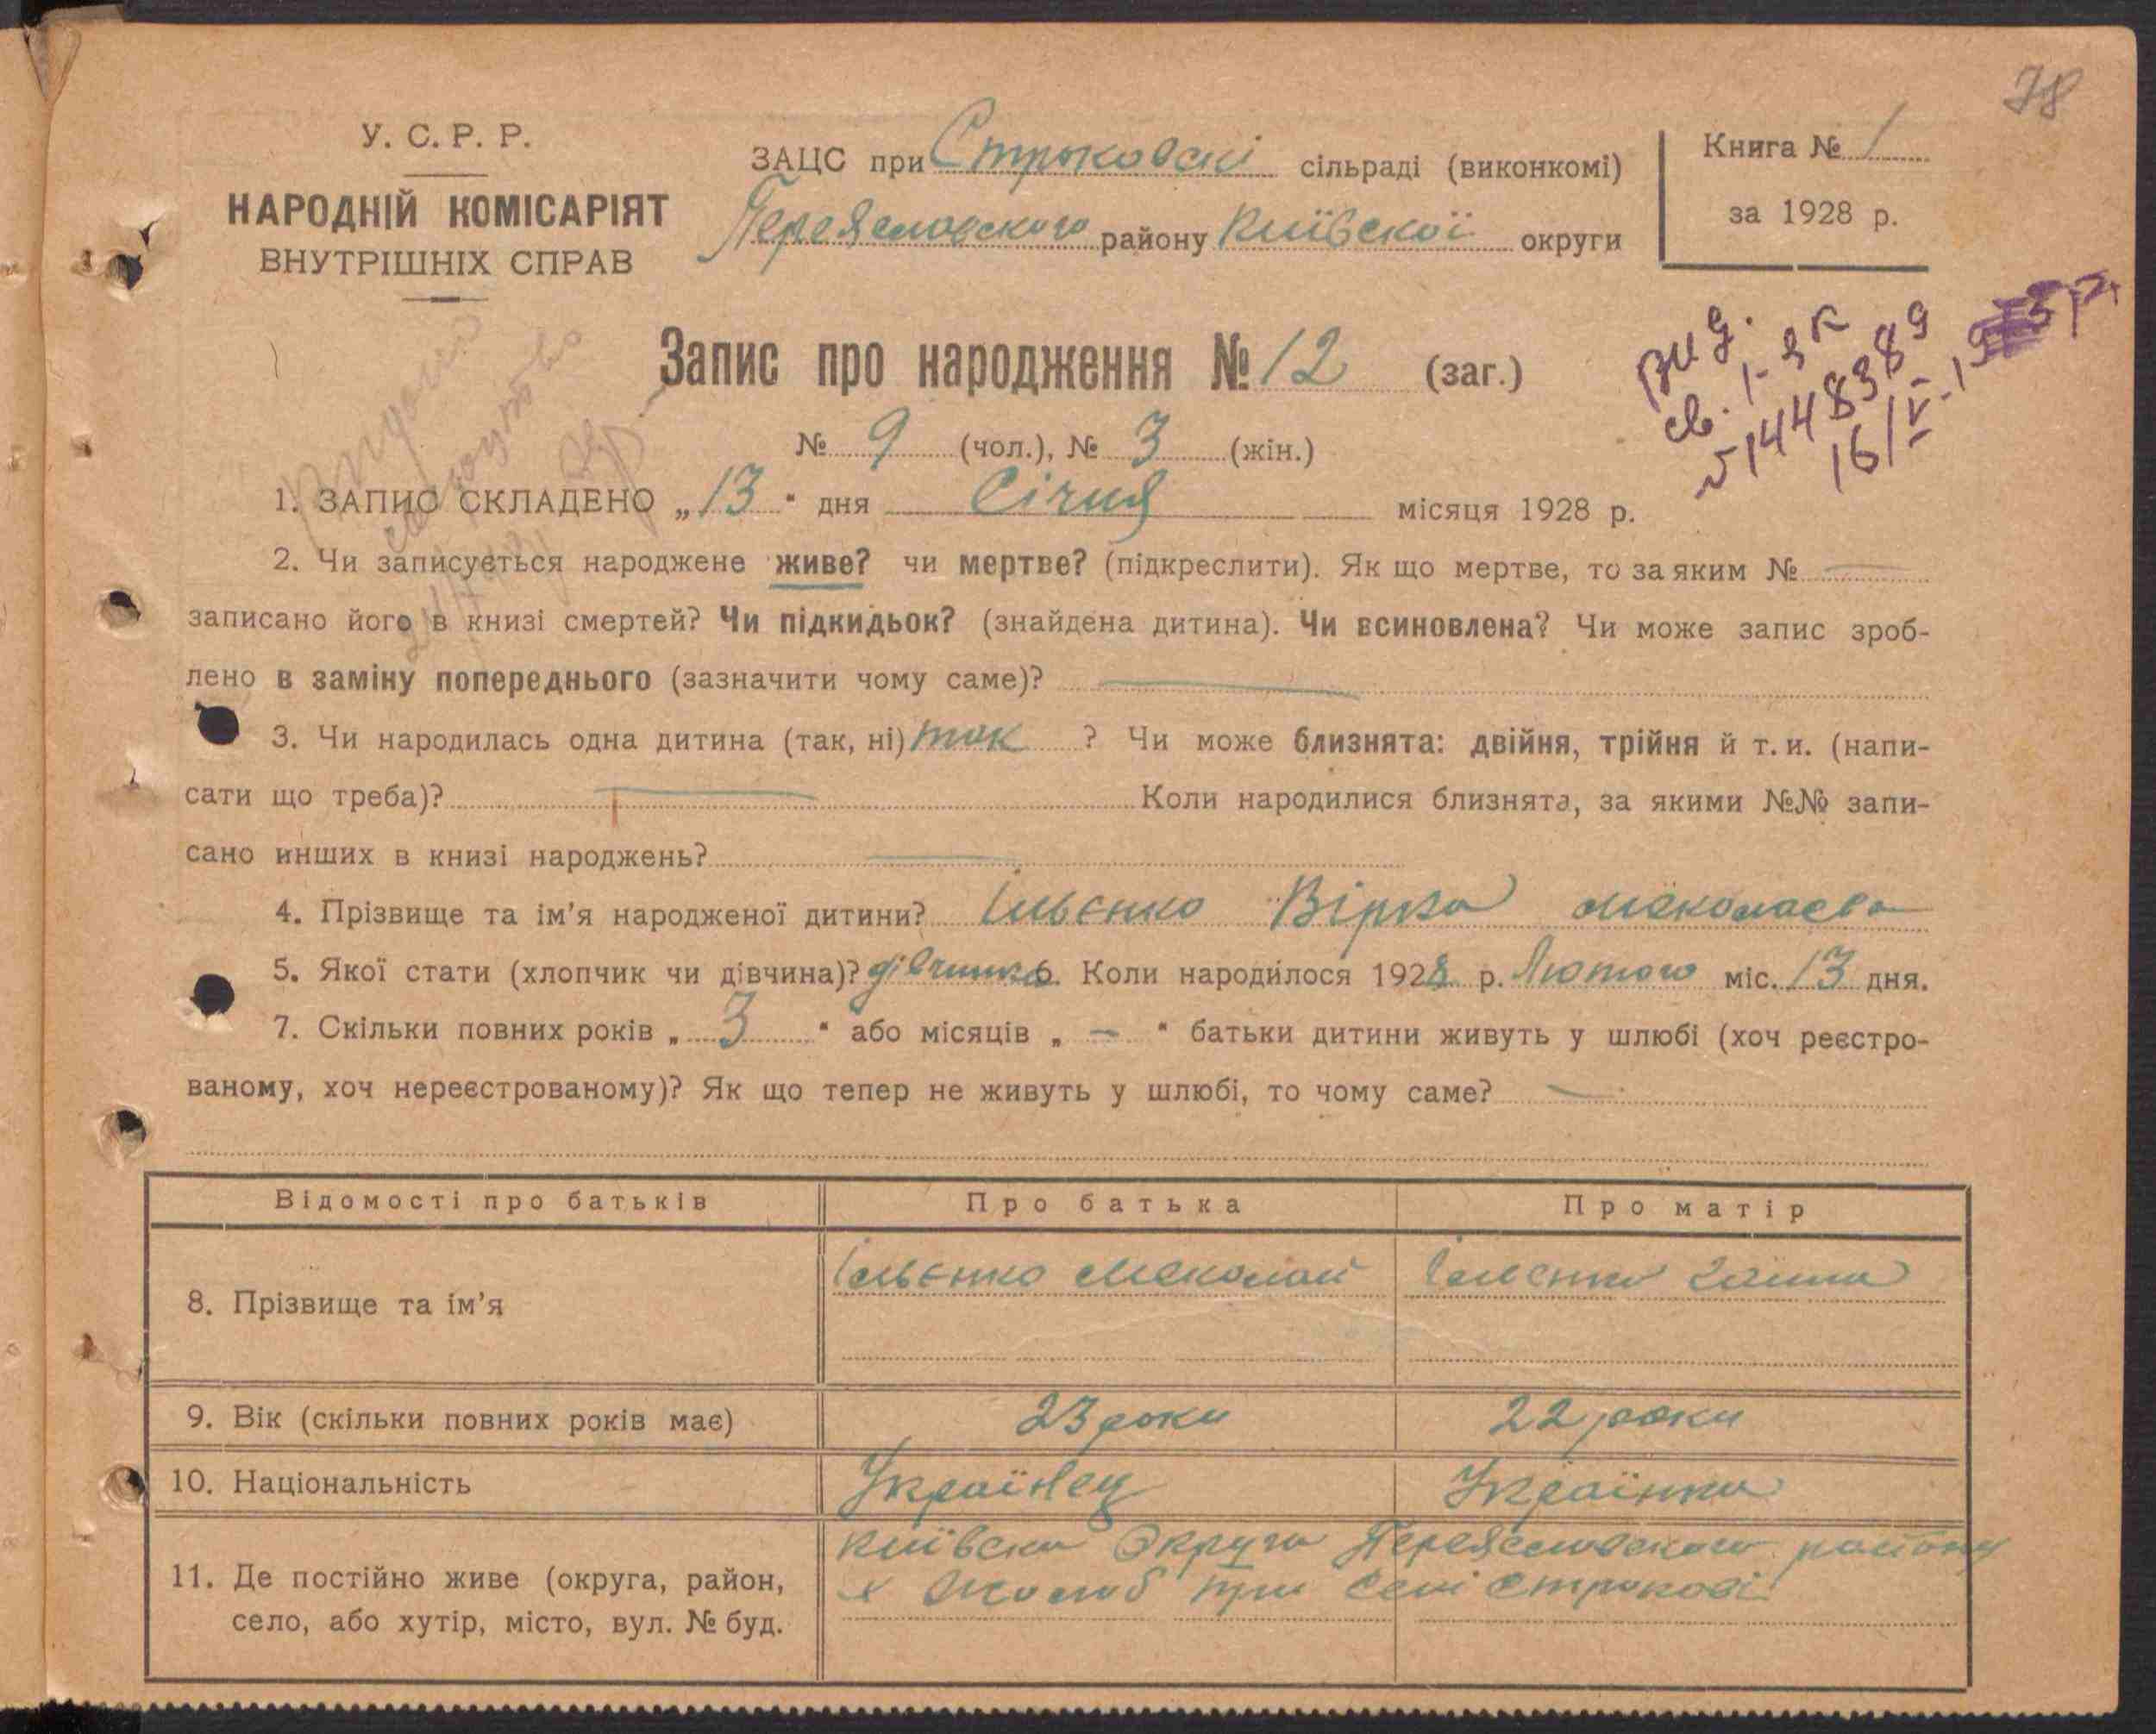 78
У. С. Р. Р.
НАРОДНІЙ КОМІСАРІЯТ
ВНУТРІШНІХ СПРАВ
ЗАЦС при Строковскі сільраді (виконкомі)
Переяславского району Київскої округи
Книга № 1
за 1928 р.
Запис про народження № 12 (заг.)
№ 9 (чол.), № 3 (жін.)
вид.
св. 1-
1. ЗАПИС СКЛАДЕНО „13“ дня Січня місяця 1928 р.
2. Чи записується народжене живе? чи мертве? (підкреслити). Як що мертве, то за яким № —
записано його в книзі смертей? Чи підкидьок? (знайдена дитина). Чи всиновлена? Чи може запис зроб-
лено в заміну попереднього (зазначити чому саме)? —
3. Чи народилась одна дитина (так, ні) так ? Чи може близнята: двійня, трійня й т. и. (напи-
сати що треба)? — Коли народилися близнята, за якими №№ запи-
сано инших в книзі народжень? —
4. Прізвище та ім'я народженої дитини? Ільєнко Вірка Меколаєва
5. Якої стати (хлопчик чи дівчина)? дівчинка 6. Коли народилося 1928 р. Лютого міс. 13 дня.
7. Скільки повних років „ 3 “ або місяців „ — “ батьки дитини живуть у шлюбі (хоч реєстро-
ваному, хоч нереєстрованому)? Як що тепер не живуть у шлюбі, то чому саме? —
Відомості про батьків Про батька Про матір
8. Прізвище та ім'я Ільєнко Меколай Ільєнко Ганна
9. Вік (скільки повних років має) 23 роки 22 роки
10. Національність Українец Українка
11. Де постійно живе (округа, район, село, або хутір, місто, вул. № буд. Київска Округа Переяславского району
х при селі Строкові